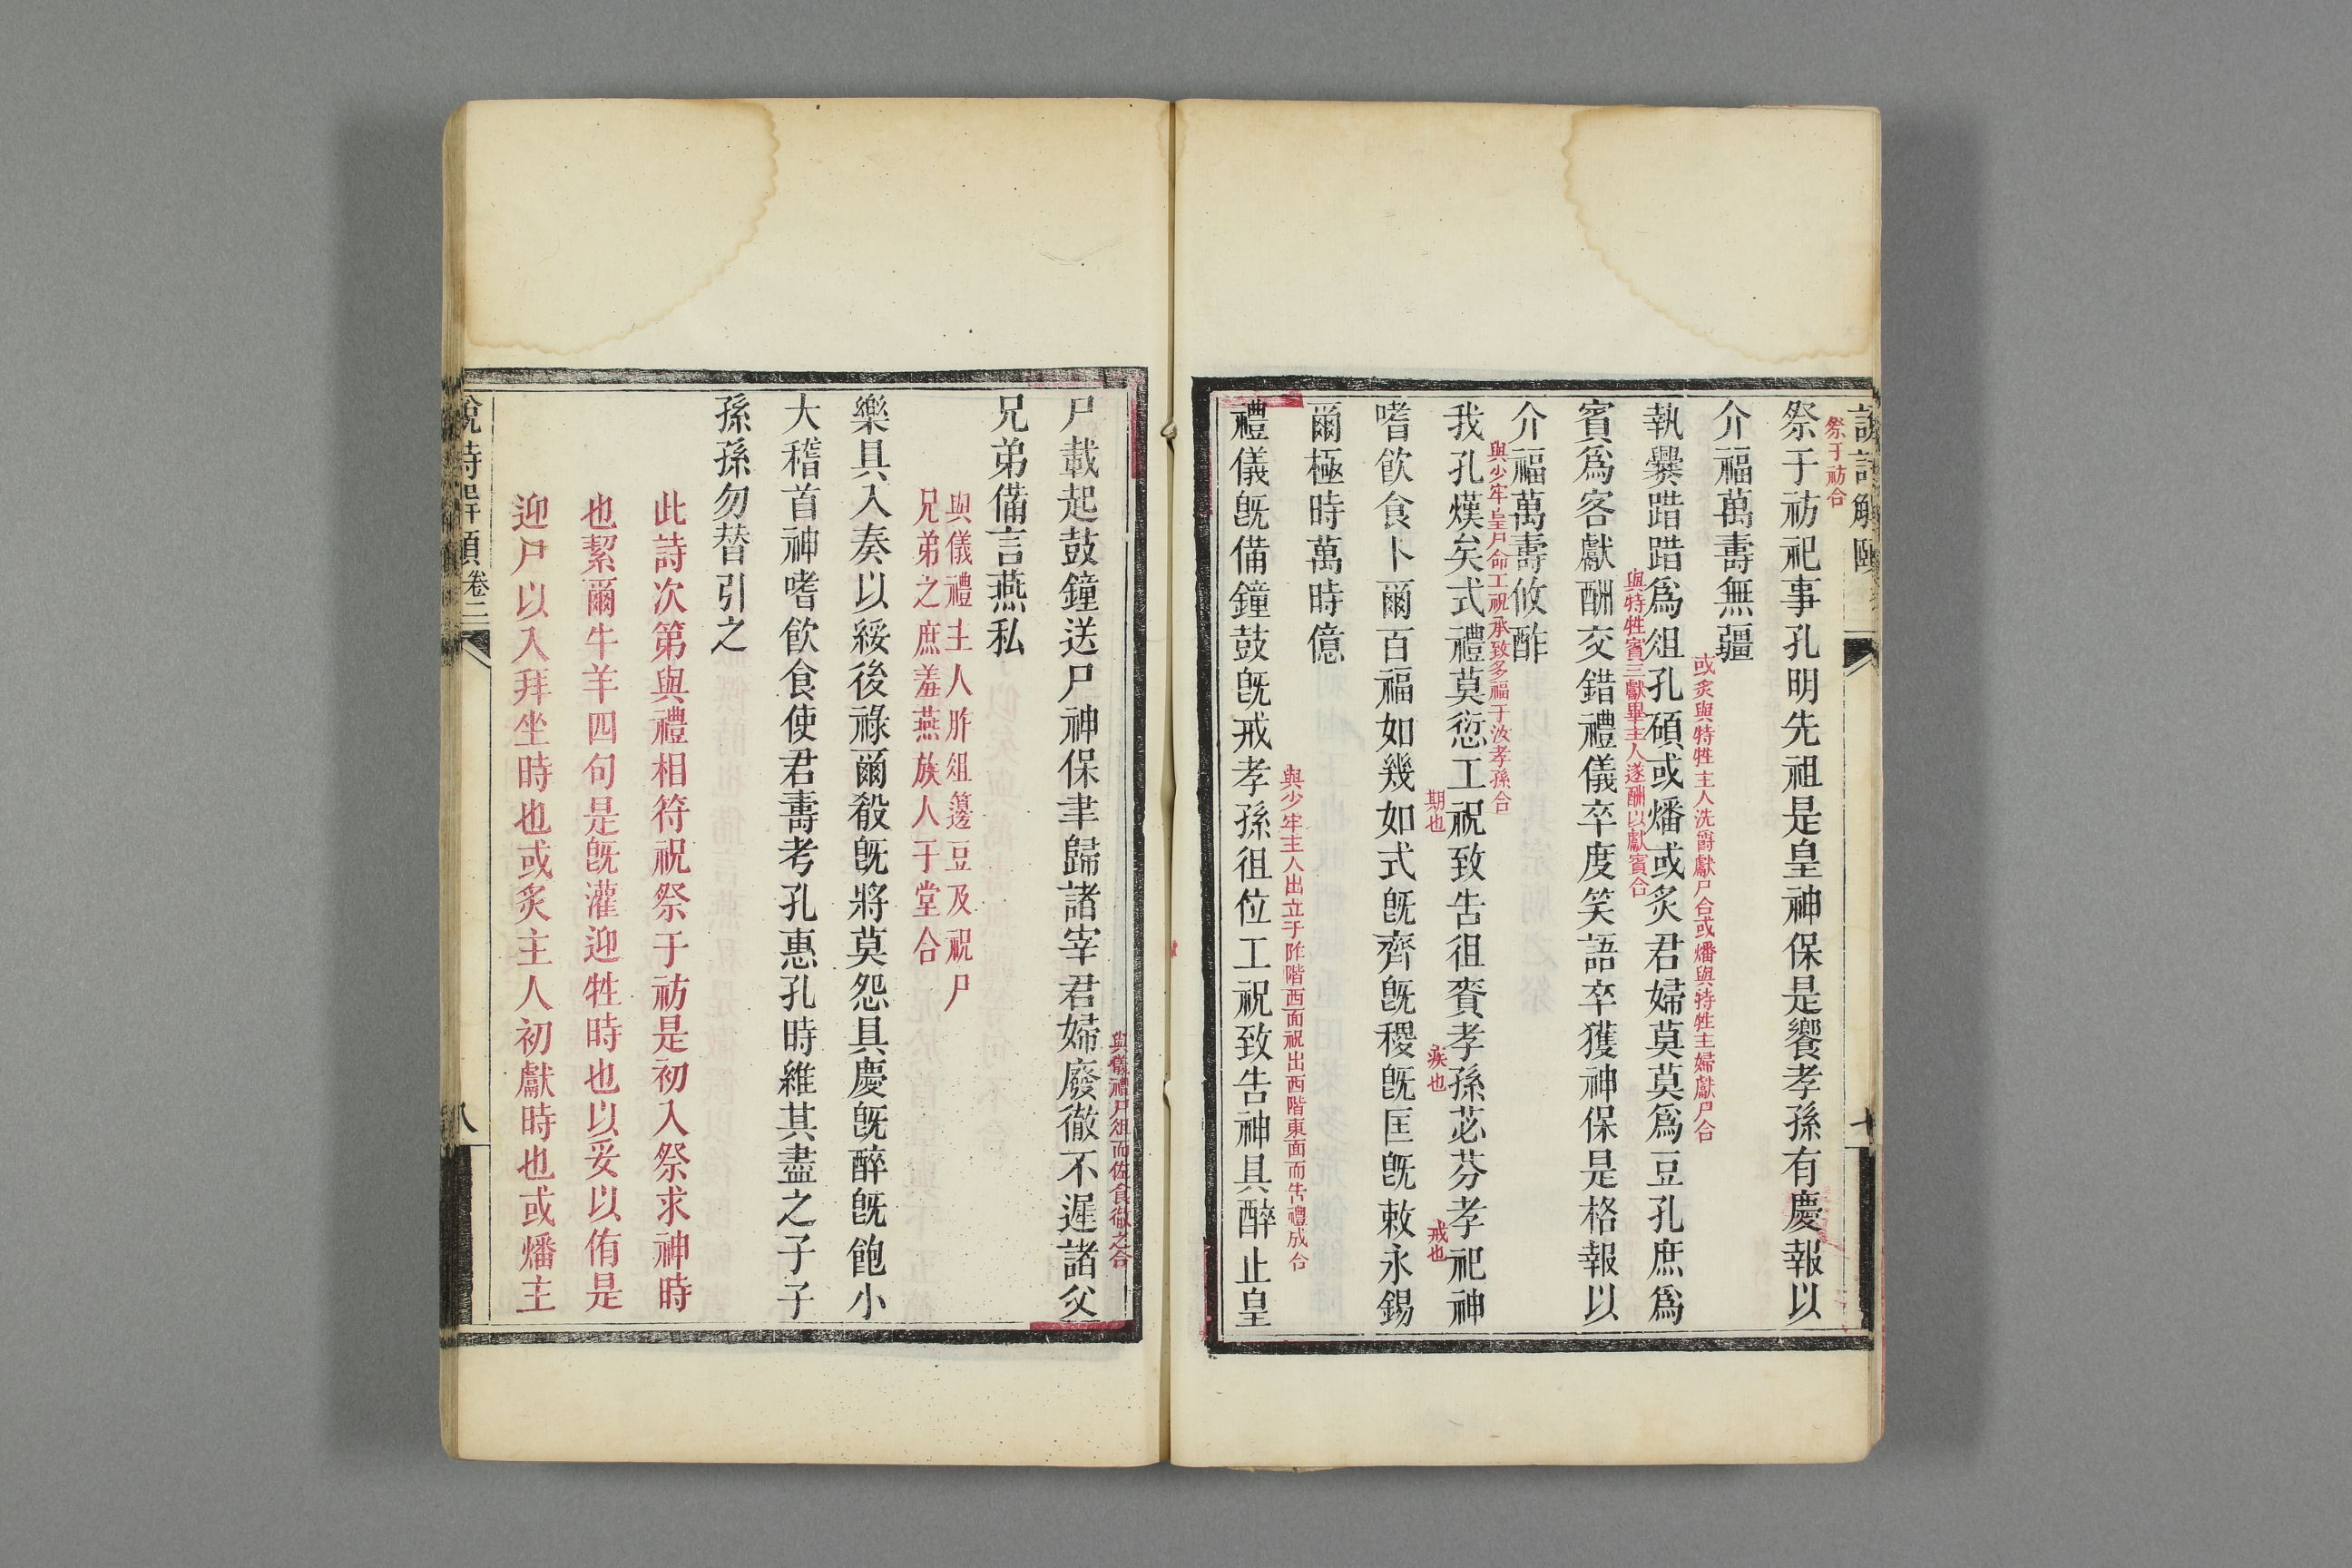 說詩解頤
祭于祊合
祭于祊祀事孔明先祖是皇神保是饗孝孫有慶報以
介福萬壽無疆
或炙與特牲主人洗爵獻尸合或燔與特牲主婦獻尸合
執爨踖踖爲俎孔碩或燔或炙君婦莫莫爲豆孔庶爲
與特牲賓三獻畢主人遂酬以獻賓合
賓爲客獻酬交錯禮儀卒度笑語卒獲神保是格報以
介福萬壽攸酢
與少牢皇尸命工祝承致多福于汝孝孫合
我孔熯矣式禮莫愆工祝致告徂賚孝孫苾芬孝祀神
期也
疾也
戒也
嗜飲食卜爾百福如幾如式旣齊旣稷旣匡旣敕永錫
爾極時萬時億
與少牢主人出立于阼階西面祝出西階東面而告禮成合
禮儀旣備鐘鼓旣戒孝孫徂位工祝致告神具醉止皇
與儀禮尸俎而佐食徹之合
尸載起鼓鐘送尸神保聿歸諸宰君婦廢徹不遲諸父
兄弟備言燕私
與儀禮主人胙俎籩豆及祝尸
兄弟之庶羞燕族人于堂合
樂具入奏以綏後祿爾殽旣將莫怨具慶旣醉旣飽小
大稽首神嗜飲食使君壽考孔惠孔時維其盡之子子
孫孫勿替引之
此詩次第與禮相符祝祭于祊是初入祭求神時
也絜爾牛羊四句是旣灌迎牲時也以妥以侑是
迎尸以入拜坐時也或炙主人初獻時也或燔主
說詩解頤 卷二
八